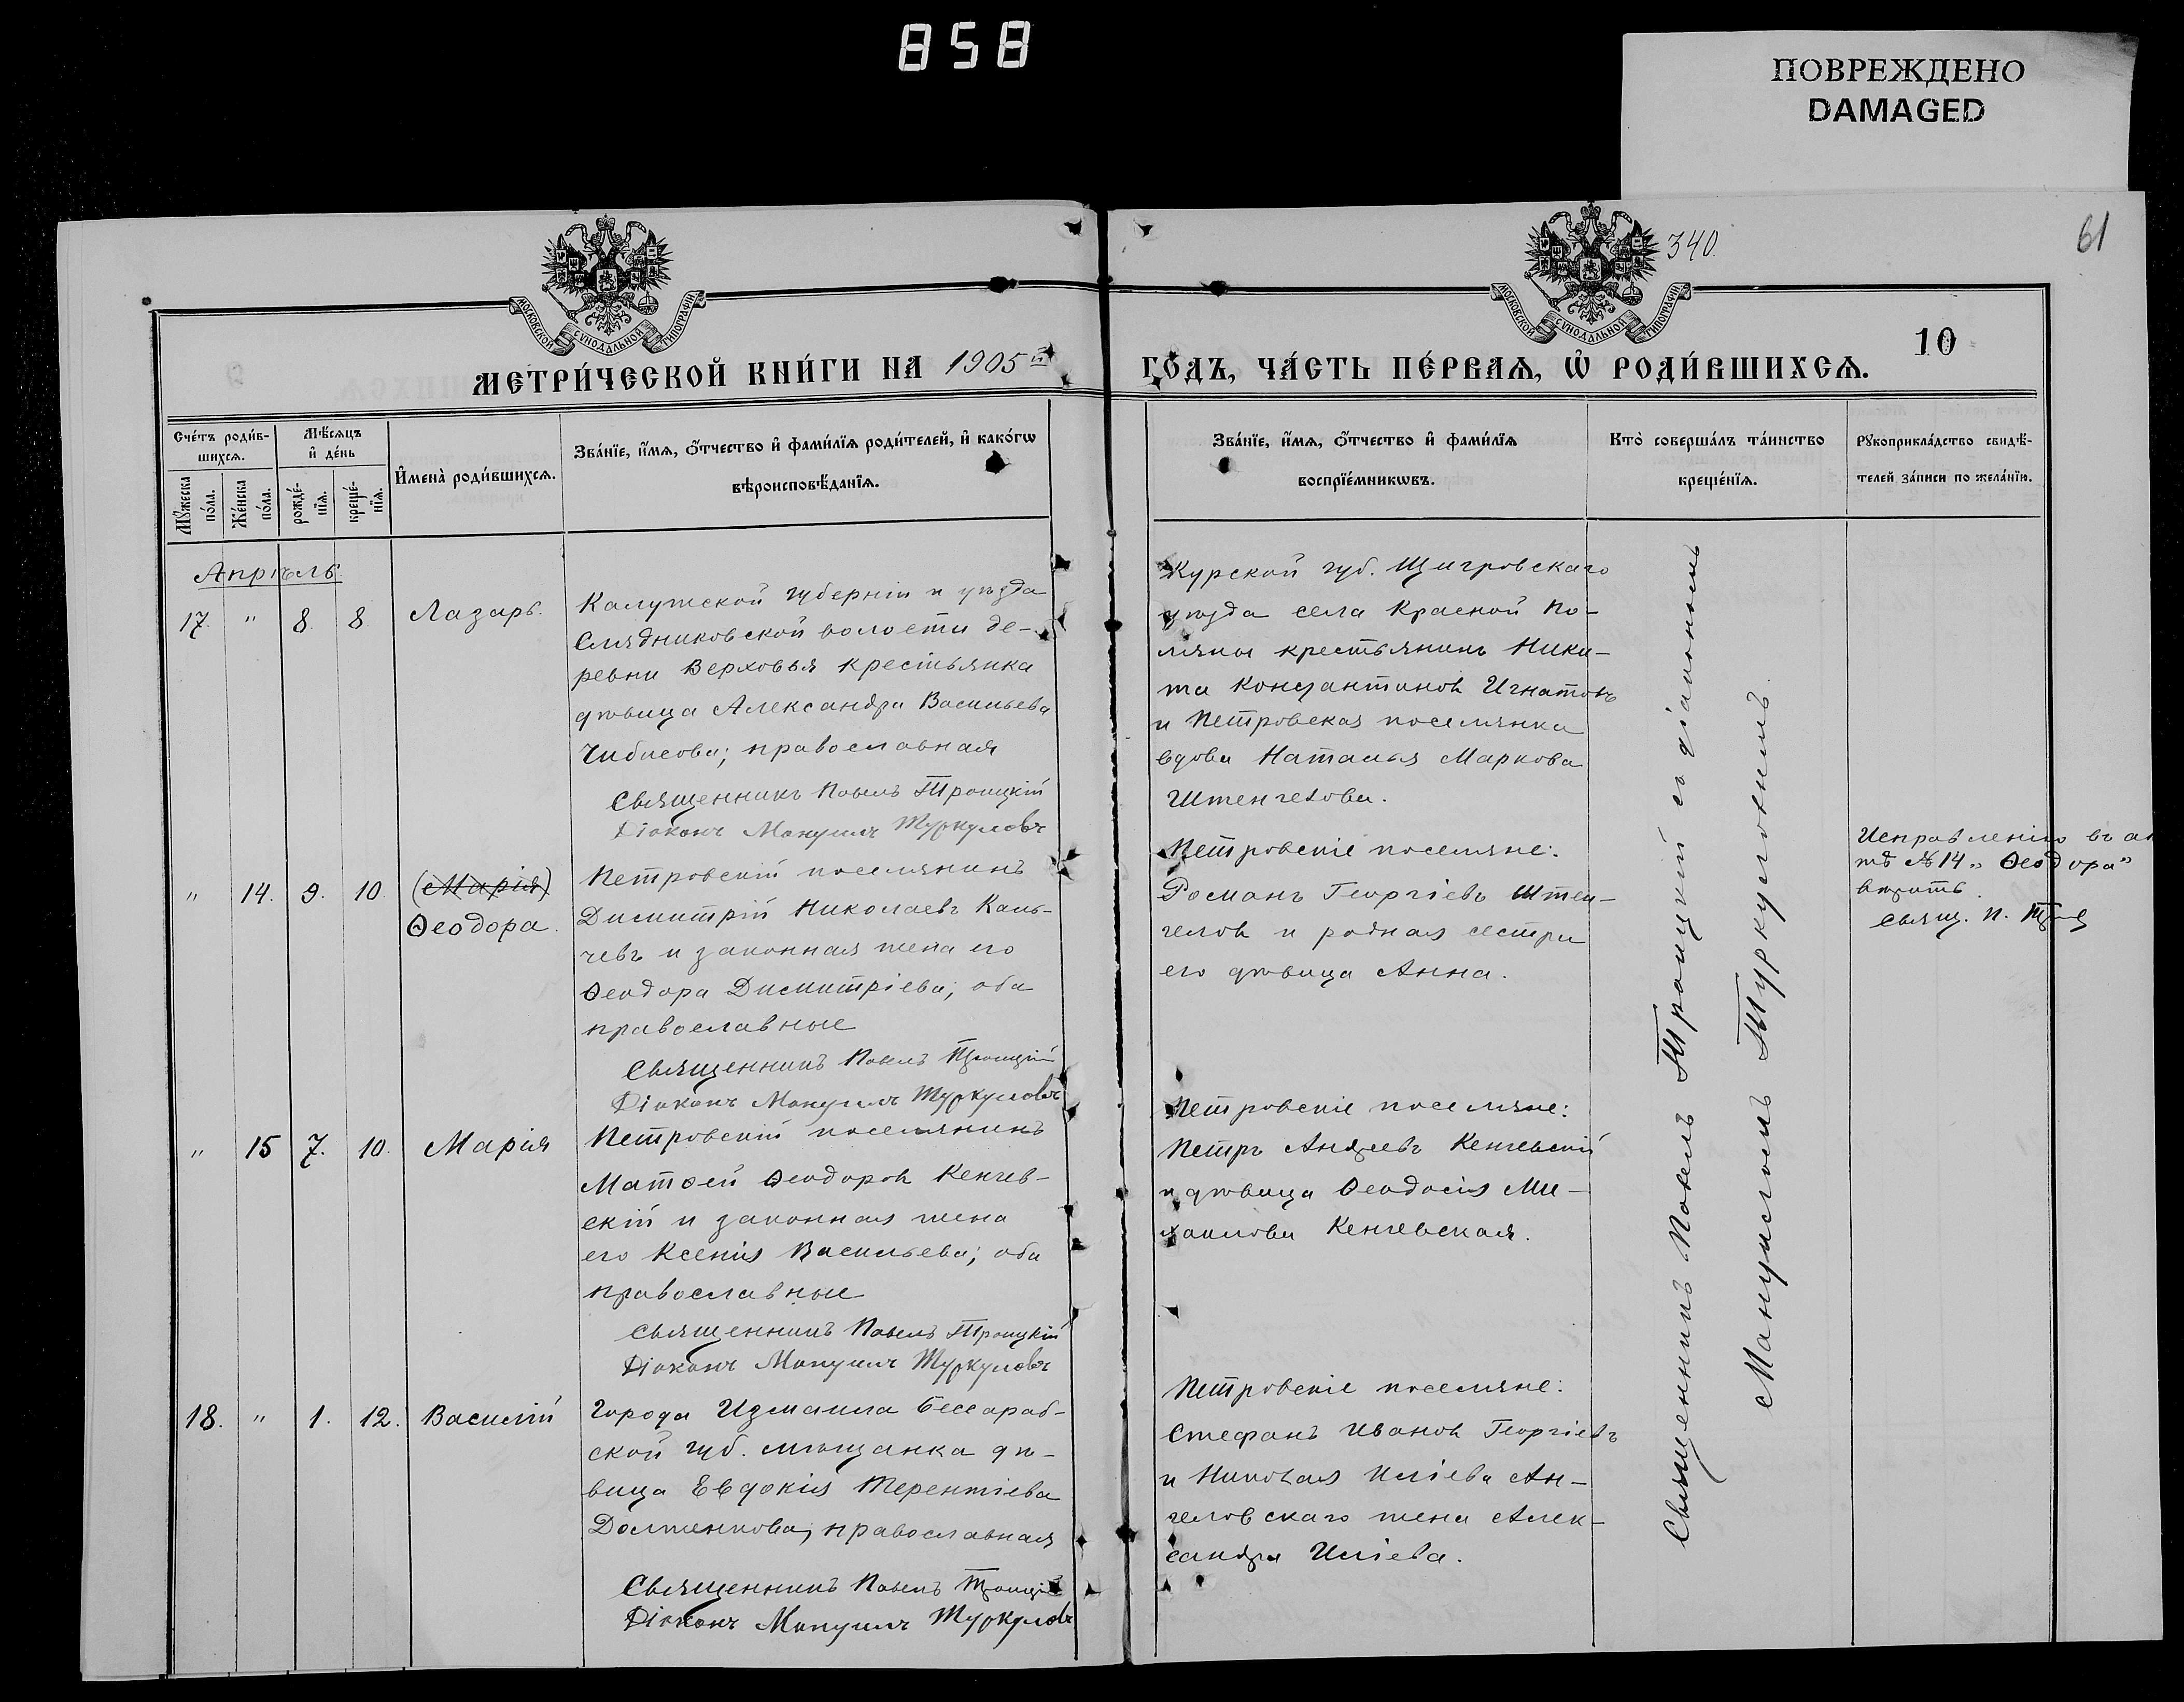 858
ПОВРЕЖДЕНО
DAMAGED
340.
61
10
МОСКОВСКОЙ СѴНОДАЛЬНОЙ ТИПОГРАФІИ
МОСКОВСКОЙ СѴНОДАЛЬНОЙ ТИПОГРАФІИ
МЕТРИ́ЧЕСКОЙ КНИ́ГИ НА 1905й
ГО́ДЪ, ЧА́СТЬ ПЕ́РВАѦ, Ѡ҆ РОДИ́ВШИХСѦ.
Сче́тъ роди́в-
шихсѧ.
Мѣ́сѧцъ
и҆ де́нь
И҆мена̀ роди́вшихсѧ.
Зва́нїе, и҆́мѧ, ѻ҆́тчество и҆ фами́лїѧ роди́телей, и҆ како́гѡ
вѣроисповѣ́данїѧ.
Мꙋ́жеска по́ла.
Же́нска по́ла.
рожде́-нїѧ.
креще́-нїѧ.
Зва́нїе, и҆́мѧ, ѻ҆́тчество и҆ фами́лїѧ
воспрїе́мникѡвъ.
Кто̀ соверша́лъ та́инство
креще́нїѧ.
Рꙋкоприкла́дство свидѣ́-
телей за́писи по жела́нїю.
Апрѣль
17. " 8. 8. Лазарь.
Калужской губерніи и уѣзда
Слядниковской волости де-
ревни Верховья крестьянка
дѣвица Александра Васильева
Чибисова; православная
Священникъ Павелъ Троицкій
Діаконъ Мануилъ Туркуловъ
Курской губ. Щигровскаго
уѣзда села Красной По-
ляны крестьянинъ Ники-
та Константиновъ Игнатовъ
и Петровская поселянка
вдова Наталья Маркова
Штенгелова.
" 14. 9. 10. (Марія)
Ѳеодора.
Петровскій поселянинъ
Димитрій Николаевъ Каль-
чевъ и законная жена его
Ѳеодора Димитріева; оба
православные
Священникъ Павелъ Троицкій
Діаконъ Мануилъ Туркуловъ
Петровскіе поселяне:
Романъ Георгіевъ Штен-
геловъ и родная сестра
его дѣвица Анна.
Исправленію въ ак
тѣ № 14 „Ѳеодора"
вѣрить.
Свящ. П. Троиц
" 15 7. 10. Марія
Петровскій поселянинъ
Матѳей Ѳеодоровъ Кенчев-
скій и законная жена
его Ксенія Васильева; оба
православные
Священникъ Павелъ Троицкій
Діаконъ Мануилъ Туркуловъ
Петровскіе поселяне:
Петръ Андреевъ Кенчевскій
и дѣвица Ѳеодосія Ми-
хаилова Кенчевская.
18. " 1. 12. Василій
Города Измаила Бессараб-
ской губ. мѣщанка дѣ-
вица Евдокія Терентіева
Долженкова; православная
Священникъ Павелъ Троицкій
Діаконъ Мануилъ Туркуловъ
Петровскіе поселяне:
Стефанъ Ивановъ Георгіевъ
и Николая Иліева Ан-
геловскаго жена Алек-
сандра Иліева.
Священникъ Павелъ Троицкій съ діакономъ
Мануиломъ Туркуловымъ.